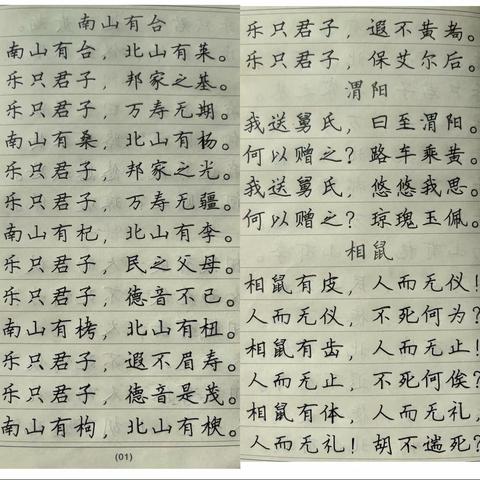 南山有台
南山有台，北山有莱。
乐只君子，邦家之基。
乐只君子，万寿无期。
南山有桑，北山有杨。
乐只君子，邦家之光。
乐只君子，万寿无疆。
南山有杞，北山有李。
乐只君子，民之父母。
乐只君子，德音不已。
南山有栲，北山有杻。
乐只君子，遐不眉寿。
乐只君子，德音是茂。
南山有枸，北山有楰。
(01)
乐只君子，遐不黄耇。
乐只君子，保艾尔后。
渭阳
我送舅氏，曰至渭阳。
何以赠之？路车乘黄。
我送舅氏，悠悠我思。
何以赠之？琼瑰玉佩。
相鼠
相鼠有皮，人而无仪！
人而无仪，不死何为？
相鼠有齿，人而无止！
人而无止，不死何俟？
相鼠有体，人而无礼，
人而无礼！胡不遄死？